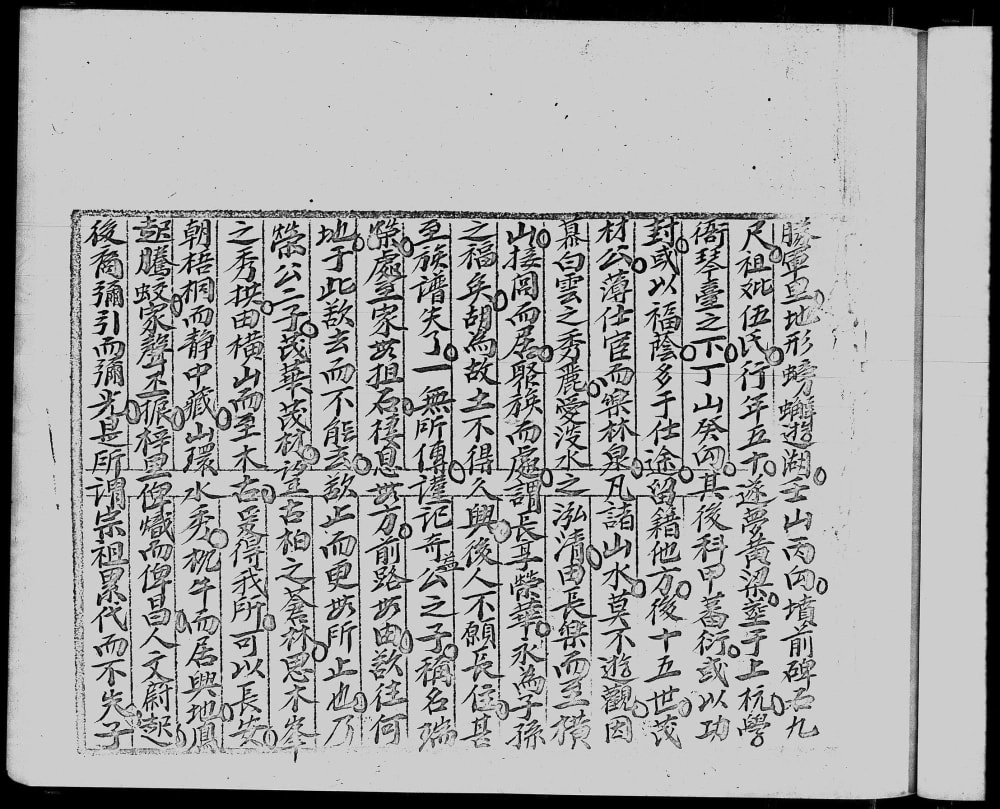 勝軍旦地形螃蠏遊湖壬山丙向墳前碑石九
尺祖妣伍氏行年五十遂夢黄梁塟于上杭學
衙琴臺之下丁山癸向其後科甲蕃衍或以功
封或以福蔭多于仕途留籍他方後十五世茂
材公薄仕宦而樂林泉凡諸山水莫不遊觀因
慕白雲之秀麗愛沒水之泓清由長樂而至橫
山接闾而居聚族而處謂長享榮華永為子孫
之福矣胡為故土不得久興後人不願長住甚
至族譜失了一無所傳謹記奇益公之子稱名瑞
榮處室家毋担石棲息毋方前路毋由欲往何
地于此欲去而不能去欲止而更毋所止也乃
榮公二子茂華茂材望古柏之蒼林思木峯
之秀拱由橫山而至木古爰得我所可以長安
朝梧桐而靜中藏山環水秀枕牛而居興地鳳
起騰蛟家聲丕振梓里俾熾而俾昌人文蔚起
後裔彌引而彌光是所謂宗祖累代而不失子